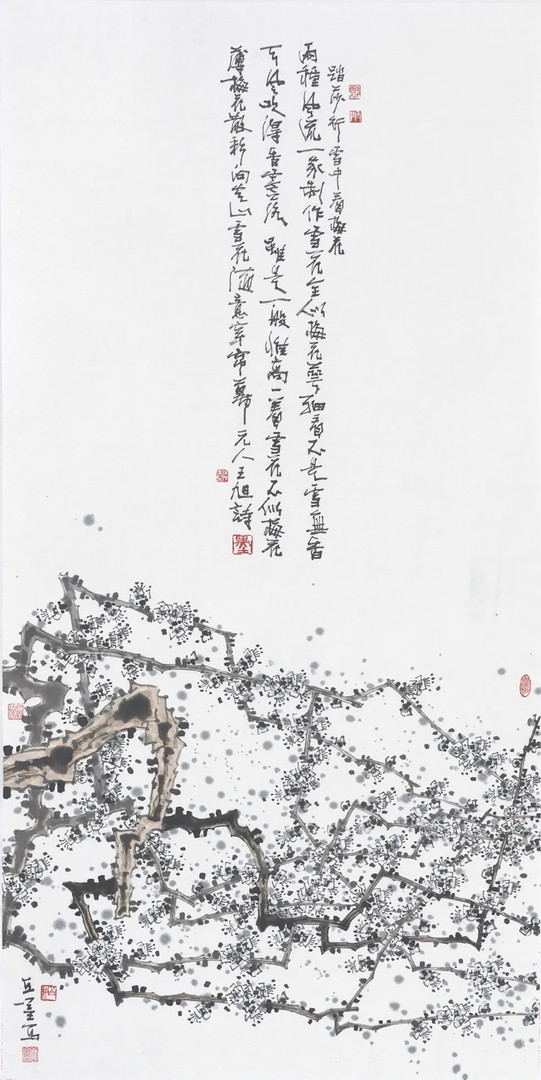 踏莎行雪中看梅花
兩種風流一家制作雪花全似梅花萼細看不是雪無香
天風吹得香零落雖是一般惟高一着雪花不似梅花
薄梅花散彩向空山雪花隨意穿帘幕元人王旭詩